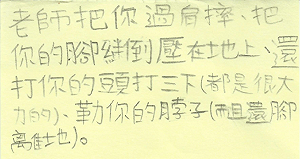 老師把你過肩摔、把
你的腳絆倒壓在地上、還
打你的頭打三下(都是很大
力的)、勒你的脖子(而且還腳
离隹地)。